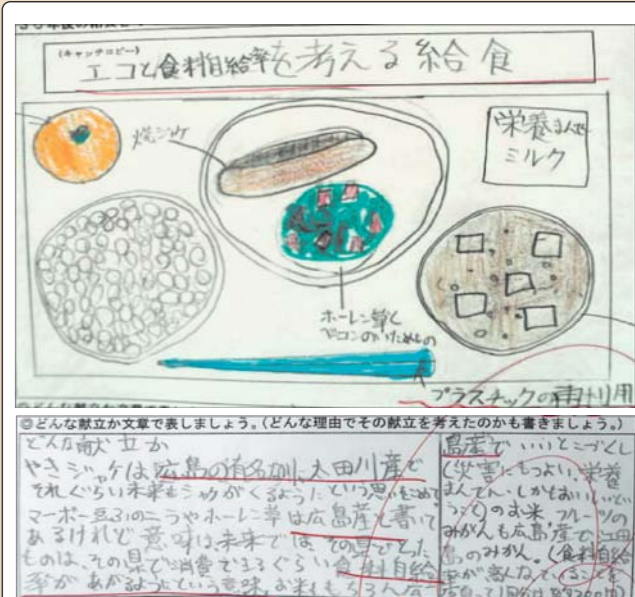 (キャッチコピー)
エコと食料自給率を考える給食
焼ジャケ
栄養まんてん
ミルク
ホーレン草と
ベーコンのいためもの
プラスチックの再利用
◎どんな献立か文章で表しましょう。(どんな理由でその献立を考えたのかも書きましょう。)
どんな献立か
やきジャケは広島の有名な川、太田川産で
それぐらい未来もシャケがくるようにという思いをこめて
マーボー豆ふのニラやホーレン草は広島産と書いて
あるけれど意味は、未来では、その県でとった
ものは、その県で消費できるぐらい食料自給
率があがるようにという意味、お米もちろん広
島産でいいとこづくし
(災害にもつよい、栄養
まんてん、しかもおいしいという
のお米 フルーツの
みかんも広島産で江田
島のみかん。(食料自給
率が高くなっていることを